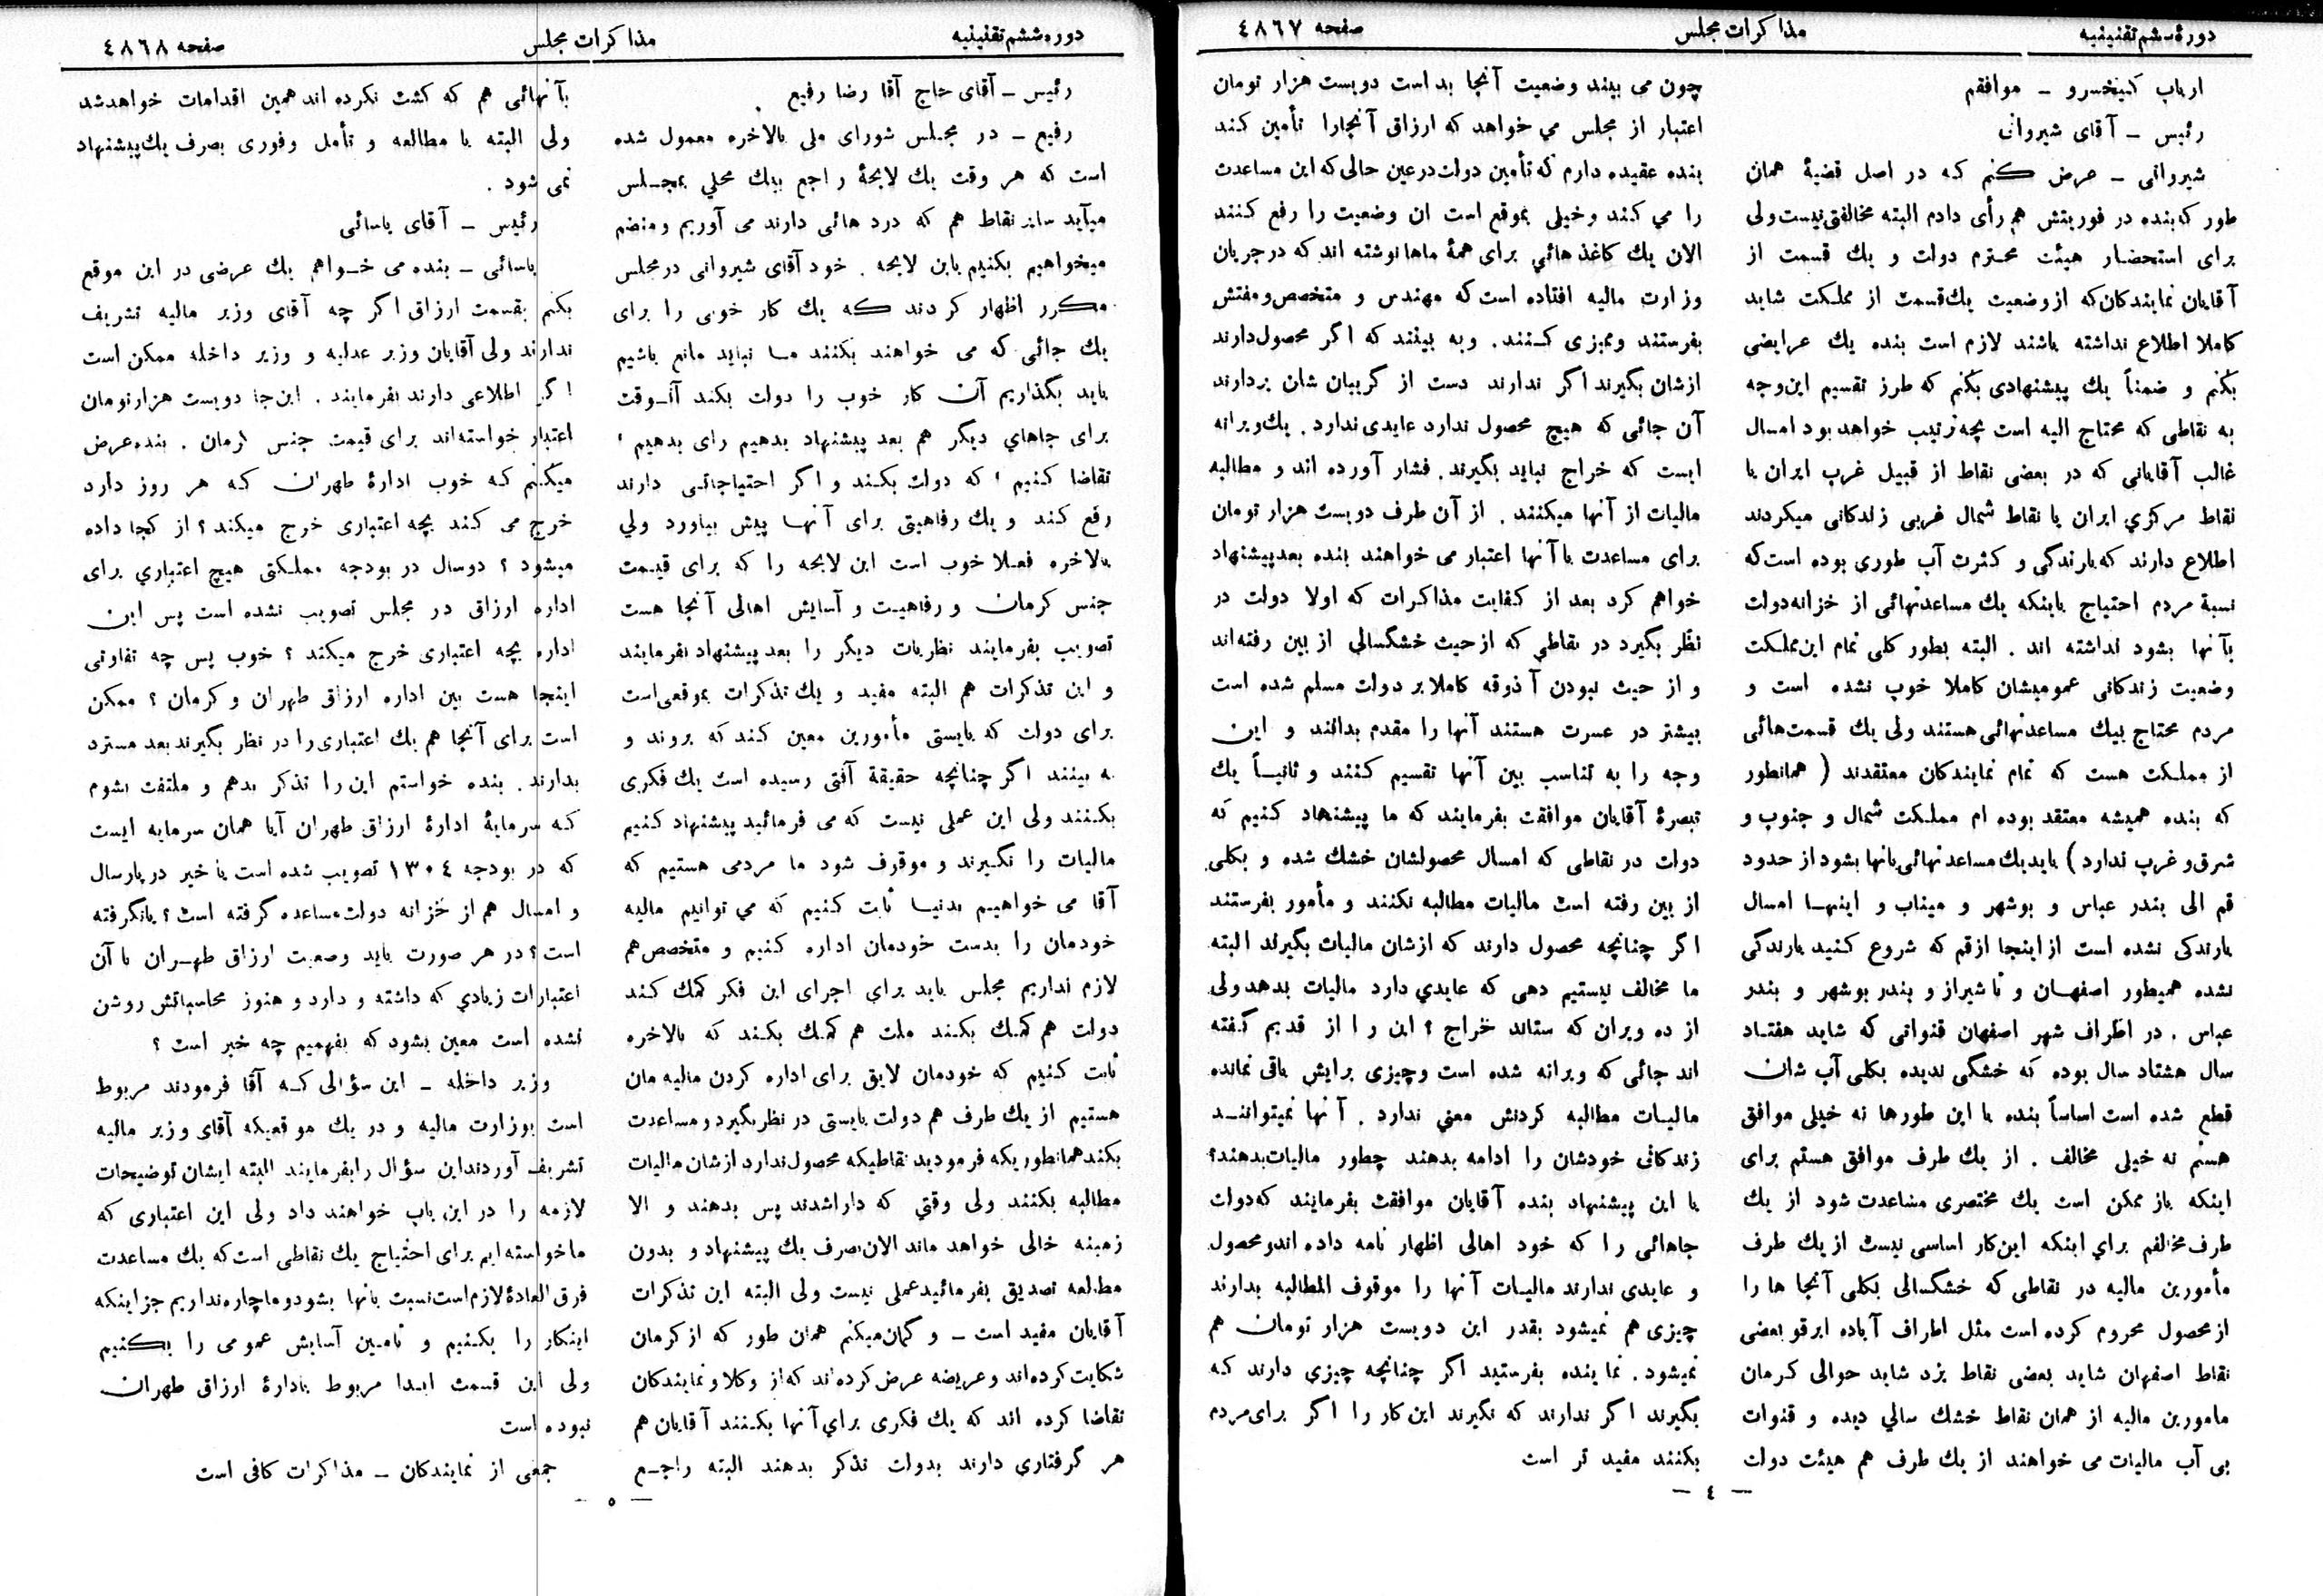 دورهٔ ششم تقنینیه
مذاکرات مجلس
صفحه ٤٨٦٧
ارباب کیخسرو ـ موافقم
رئیس ـ آقای شیروانی
شیروانی ـ عرض کنم که در اصل قضیهٔ همان
طور که بنده در فوریتش هم رأی دادم البته مخالفتی نیست ولی
برای استحضار هیئت محترم دولت و یك قسمت از
آقایان نمایندکان که از وضعیت یك قسمت از مملکت شاید
کاملا اطلاع نداشته باشند لازم است بنده یك عرایضی
بکنم و ضمناً یك پیشنهادی بکنم که طرز تقسیم این وجه
به نقاطی که محتاج الیه است بچه ترتیب خواهد بود امسال
غالب آقایانی که در بعضی نقاط از قبیل غرب ایران یا
نقاط مرکزي ایران یا نقاط شمال غربی زندکانی میکردند
اطلاع دارند که بارندگی و کثرت آب طوری بوده است که
نسبة مردم احتیاج باینکه یك مساعدتهائی از خزانه دولت
بآنها بشود نداشته اند . البته بطور کلی تمام این مملکت
وضعیت زندکانی عمومیشان کاملا خوب نشده است و
مردم محتاج بیك مساعدتهائی هستند ولی یك قسمت هائی
از مملکت هست که تمام نمایندکان معتقدند ( همانطور
که بنده همیشه معتقد بوده ام مملکت شمال و جنوب و
شرق و غرب ندارد ) باید یك مساعدتهائی بانها بشود از حدود
قم الی بندر عباس و بوشهر و میناب و اینها امسال
بارندکی نشده است از اینجا از قم که شروع کنید بارندگی
نشده همینطور اصفهان و تا شیراز و بندر بوشهر و بندر
عباس . در اطراف شهر اصفهان قنواتی که شاید هفتاد
سال هشتاد سال بوده که خشکی ندیده بکلی آب شان
قطع شده است اساساً بنده با این طورها نه خیلی موافق
هستم نه خیلی مخالف . از یك طرف موافق هستم برای
اینکه باز ممکن است یك مختصری مساعدت شود از یك
طرف مخالفم براي اینکه این کار اساسی نیست از یك طرف
مأمورین مالیه در نقاطی که خشگسالی بکلی آنجا ها را
از محصول محروم کرده است مثل اطراف آباده ابرقو بعضی
نقاط اصفهان شاید بعضی نقاط یزد شاید حوالی کرمان
مامورین مالیه از همان نقاط خشك سالي دیده و قنوات
بی آب مالیات می خواهند از یك طرف هم هیئت دولت
چون می بیند وضعیت آنجا بد است دویست هزار تومان
اعتبار از مجلس مي خواهد که ارزاق آنجارا تأمین کند
بنده عقیده دارم که تأمین دولت در عین حالی که این مساعدت
را مي کند و خیلی بموقع است ان وضعیت را رفع کنند
الان یك کاغذ هائي برای همهٔ ماها نوشته اند که در جریان
وزارت مالیه افتاده است که مهندس و متخصص و مفتش
بفرستند وممیزی کنند . وبه بینند که اگر محصول دارند
ازشان بگیرند اگر ندارند دست از گریبان شان بردارند
آن جائی که هیچ محصول ندارد عایدی ندارد . یك ویرانه
ایست که خراج نباید بگیرند . فشار آورده اند و مطالبه
مالیات از آنها میکنند . از آن طرف دویست هزار تومان
برای مساعدت با آنها اعتبار می خواهند بنده بعد پیشنهاد
خواهم کرد بعد از کفایت مذاکرات که اولا دولت در
نظر بگیرد در نقاطي که از حیث خشگسالي از بین رفته اند
و از حیث نبودن آذوقه کاملا بر دولت مسلم شده است
بیشتر در عسرت هستند آنها را مقدم بدانند و این
وجه را به تناسب بین آنها تقسیم کنند و ثانیـاً یك
تبصرهٔ آقایان موافقت بفرمایند که ما پیشنهاد کنیم که
دولت در نقاطی که امسال محصولشان خشك شده و بکلی
از بین رفته است مالیات مطالبه نکنند و مأمور بفرستند
اگر چنانچه محصول دارند که ازشان مالیات بگیرند البته
ما مخالف نیستیم دهی که عایدي دارد مالیات بدهد ولی
از ده ویران که ستاند خراج ؟ این را از قدیم گفته
اند جائی که ویرانه شده است و چیزی برایش باقی نمانده
مالیات مطالبه کردنش معني ندارد . آنها نمیتوانـد
زندکانی خودشان را ادامه بدهند چطور مالیات بدهند؟
با این پیشنهاد بنده آقایان موافقت بفرمایند که دولت
جاهائی را که خود اهالی اظهار نامه داده اند و محصول
و عایدی ندارند مالیات آنها را موقوف المطالبه بدارند
چیزی هم نمیشود بقدر این دویست هزار تومان هم
نمیشود . نماینده بفرستید اگر چنانچه چیزي دارند که
بگیرند اگر ندارند که نگیرند این کار را اگر برای مردم
بکنند مفید تر است
ـ ٤ ـ
دوره ششم تقنینیه
مذاکرات مجلس
صفحه ٤٨٦٨
رئیس ـ آقای حاج آقا رضا رفیع
رفیع ـ در مجلس شورای ملی بالاخره معمول شده
است که هر وقت یك لایحهٔ راجع بیك محلي بمجـلس
میآید سایر نقاط هم که درد هائی دارند می آوریم و منضم
میخواهیم بکنیم باین لایحه . خود آقای شیروانی در مجلس
مکرر اظهار کردند که یك کار خوبی را برای
یك جائی که می خواهند بکنند مـا نباید مانع باشیم
باید بگذاریم آن کار خوب را دولت بکند آنـوقت
برای جاهاي دیگر هم بعد پیشنهاد بدهیم رای بدهیم ،
تقاضا کنیم ، که دولت بکند و اگر احتیاجاتی دارند
رفع کند و یك رفاهیتی برای آنهـا پیش بیاورد ولي
بالاخره فعلا خوب است این لایحه را که برای قیمت
جنس کرمان و رفاهیت و آسایش اهالی آنجا هست
تصویب بفرمایند نظریات دیگر را بعد پیشنهاد بفرمایند
و این تذکرات هم البته مفید و یك تذکرات بموقعی است
برای دولت که بایستی مأمورین معین کند که بروند و
به بینند اگر چنانچه حقیقة آفتی رسیده است یك فکری
بکنند ولی این عملی نیست که می فرمائید پیشنهاد کنیم
مالیات را نگیرند و موقوف شود ما مردمی هستیم که
آقا می خواهیم بدنیا ثابت کنیم که مي توانیم مالیه
خودمان را بدست خودمان اداره کنیم و متخصص هم
لازم نداریم مجلس باید براي اجرای این فکر کمك کند
دولت هم کمك بکند ملت هم کمك بکند که بالاخره
ثابت کنیم که خودمان لایق برای اداره کردن مالیه مان
هستیم از یك طرف هم دولت بایستی در نظر بگیرد و مساعدت
بکند همانطوریکه فرمودید نقاطیکه محصول ندارد ازشان مالیات
مطالبه بکنند ولی وقتي که دارا شدند پس بدهند و الا
زمینه خالی خواهد ماند الان بصرف یك پیشنهاد و بدون
مطالعه تصدیق بفرمائید عملی نیست ولی البته این تذکرات
آقایان مفید است ـ و گمان میکنم همان طور که از کرمان
شکایت کرده اند و عریضه عرض کرده اند که از وکلا و نمایندکان
تقاضا کرده اند که یك فکری براي آنها بکنند آقایان هم
هر گرفتاري دارند بدولت تذکر بدهند البته راجـع
بآنهائی هم که کشت نکرده اند همین اقدامات خواهد شد
ولی البته با مطالعه و تأمل وفوری بصرف یك پیشنهاد
نمی شود .
رئیس ـ آقای یاسائی
یاسائی ـ بنده می خـواهم یك عرضی در این موقع
بکنم بقسمت ارزاق اگر چه آقای وزیر مالیه تشریف
ندارند ولی آقایان وزیر عدلیه و وزیر داخله ممکن است
اگر اطلاعی دارند بفرمایند . این جا دویست هزار تومان
اعتبار خواسته اند برای قیمت جنس کرمان . بنده عرض
میکنم که خوب ادارهٔ طهران که هر روز دارد
خرج می کند بچه اعتباری خرج میکند ؟ از کجا داده
میشود ؟ دوسال در بودجه مملکتی هیچ اعتباري برای
اداره ارزاق در مجلس تصویب نشده است پس این
اداره بچه اعتباری خرج میکند ؟ خوب پس چه تفاوتی
اینجا هست بین اداره ارزاق طهران و کرمان ؟ ممکن
است برای آنجا هم یك اعتباری را در نظر بگیرند بعد مسترد
بدارند . بنده خواستم این را تذکر بدهم و ملتفت بشوم
که سرمایهٔ ادارهٔ ارزاق طهران آیا همان سرمایه ایست
که در بودجه ١٣٠٤ تصویب شده است یا خیر در پارسال
و امسال هم از خزانه دولت مساعده گرفته است ؟ یا نگرفته
است ؟ در هر صورت باید وضعیت ارزاق طهـران با آن
اعتبارات زیادي که داشته و دارد و هنوز محاسباتش روشن
نشده است معین بشود که بفهمیم چه خبر است ؟
وزیر داخله ـ این سؤالی کـه آقا فرمودند مربوط
است بوزارت مالیه و در یك موقعیکه آقای وزیر مالیه
تشریف آوردند این سؤال را بفرمایند البته ایشان توضیحات
لازمه را در این باب خواهند داد ولی این اعتباری که
ما خواسته ایم برای احتیاج یك نقاطی است که یك مساعدت
فوق العادهٔ لازم است نسبت بانها بشود و ما چاره نداریم جز اینکه
اینکار را بکنیم و تامین آسایش عمومی را بکنیم
ولی این قسمت ابدا مربوط بادارهٔ ارزاق طهران
نبوده است
جمعی از نمایندکان ـ مذاکرات کافی است
ـ ٥ ـ